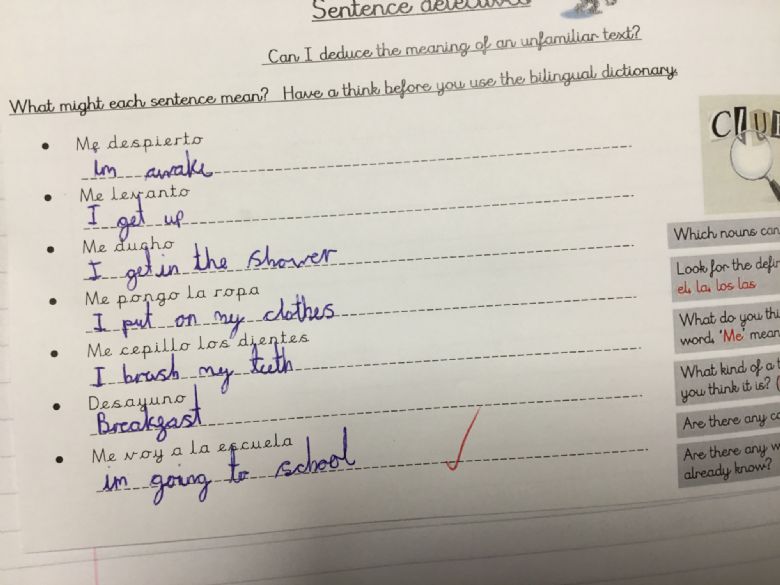 Sentence detectives
Can I deduce the meaning of an unfamiliar text?
What might each sentence mean? Have a think before you use the bilingual dictionary.
Me despierto
Im awake
Me levanto
I get up
Me dugho
I get in the shower
Me pongo la ropa
I put on my clothes
Me cepillo los dientes
I brush my teeth
Desayuno
Breakgast
Me voy a la escuela
im going to school
CLU
Which nouns can
Look for the defin
el, la, los las
What do you thi
word, 'Me' mean
What kind of a t
you think it is? (
Are there any co
Are there any w
already know?